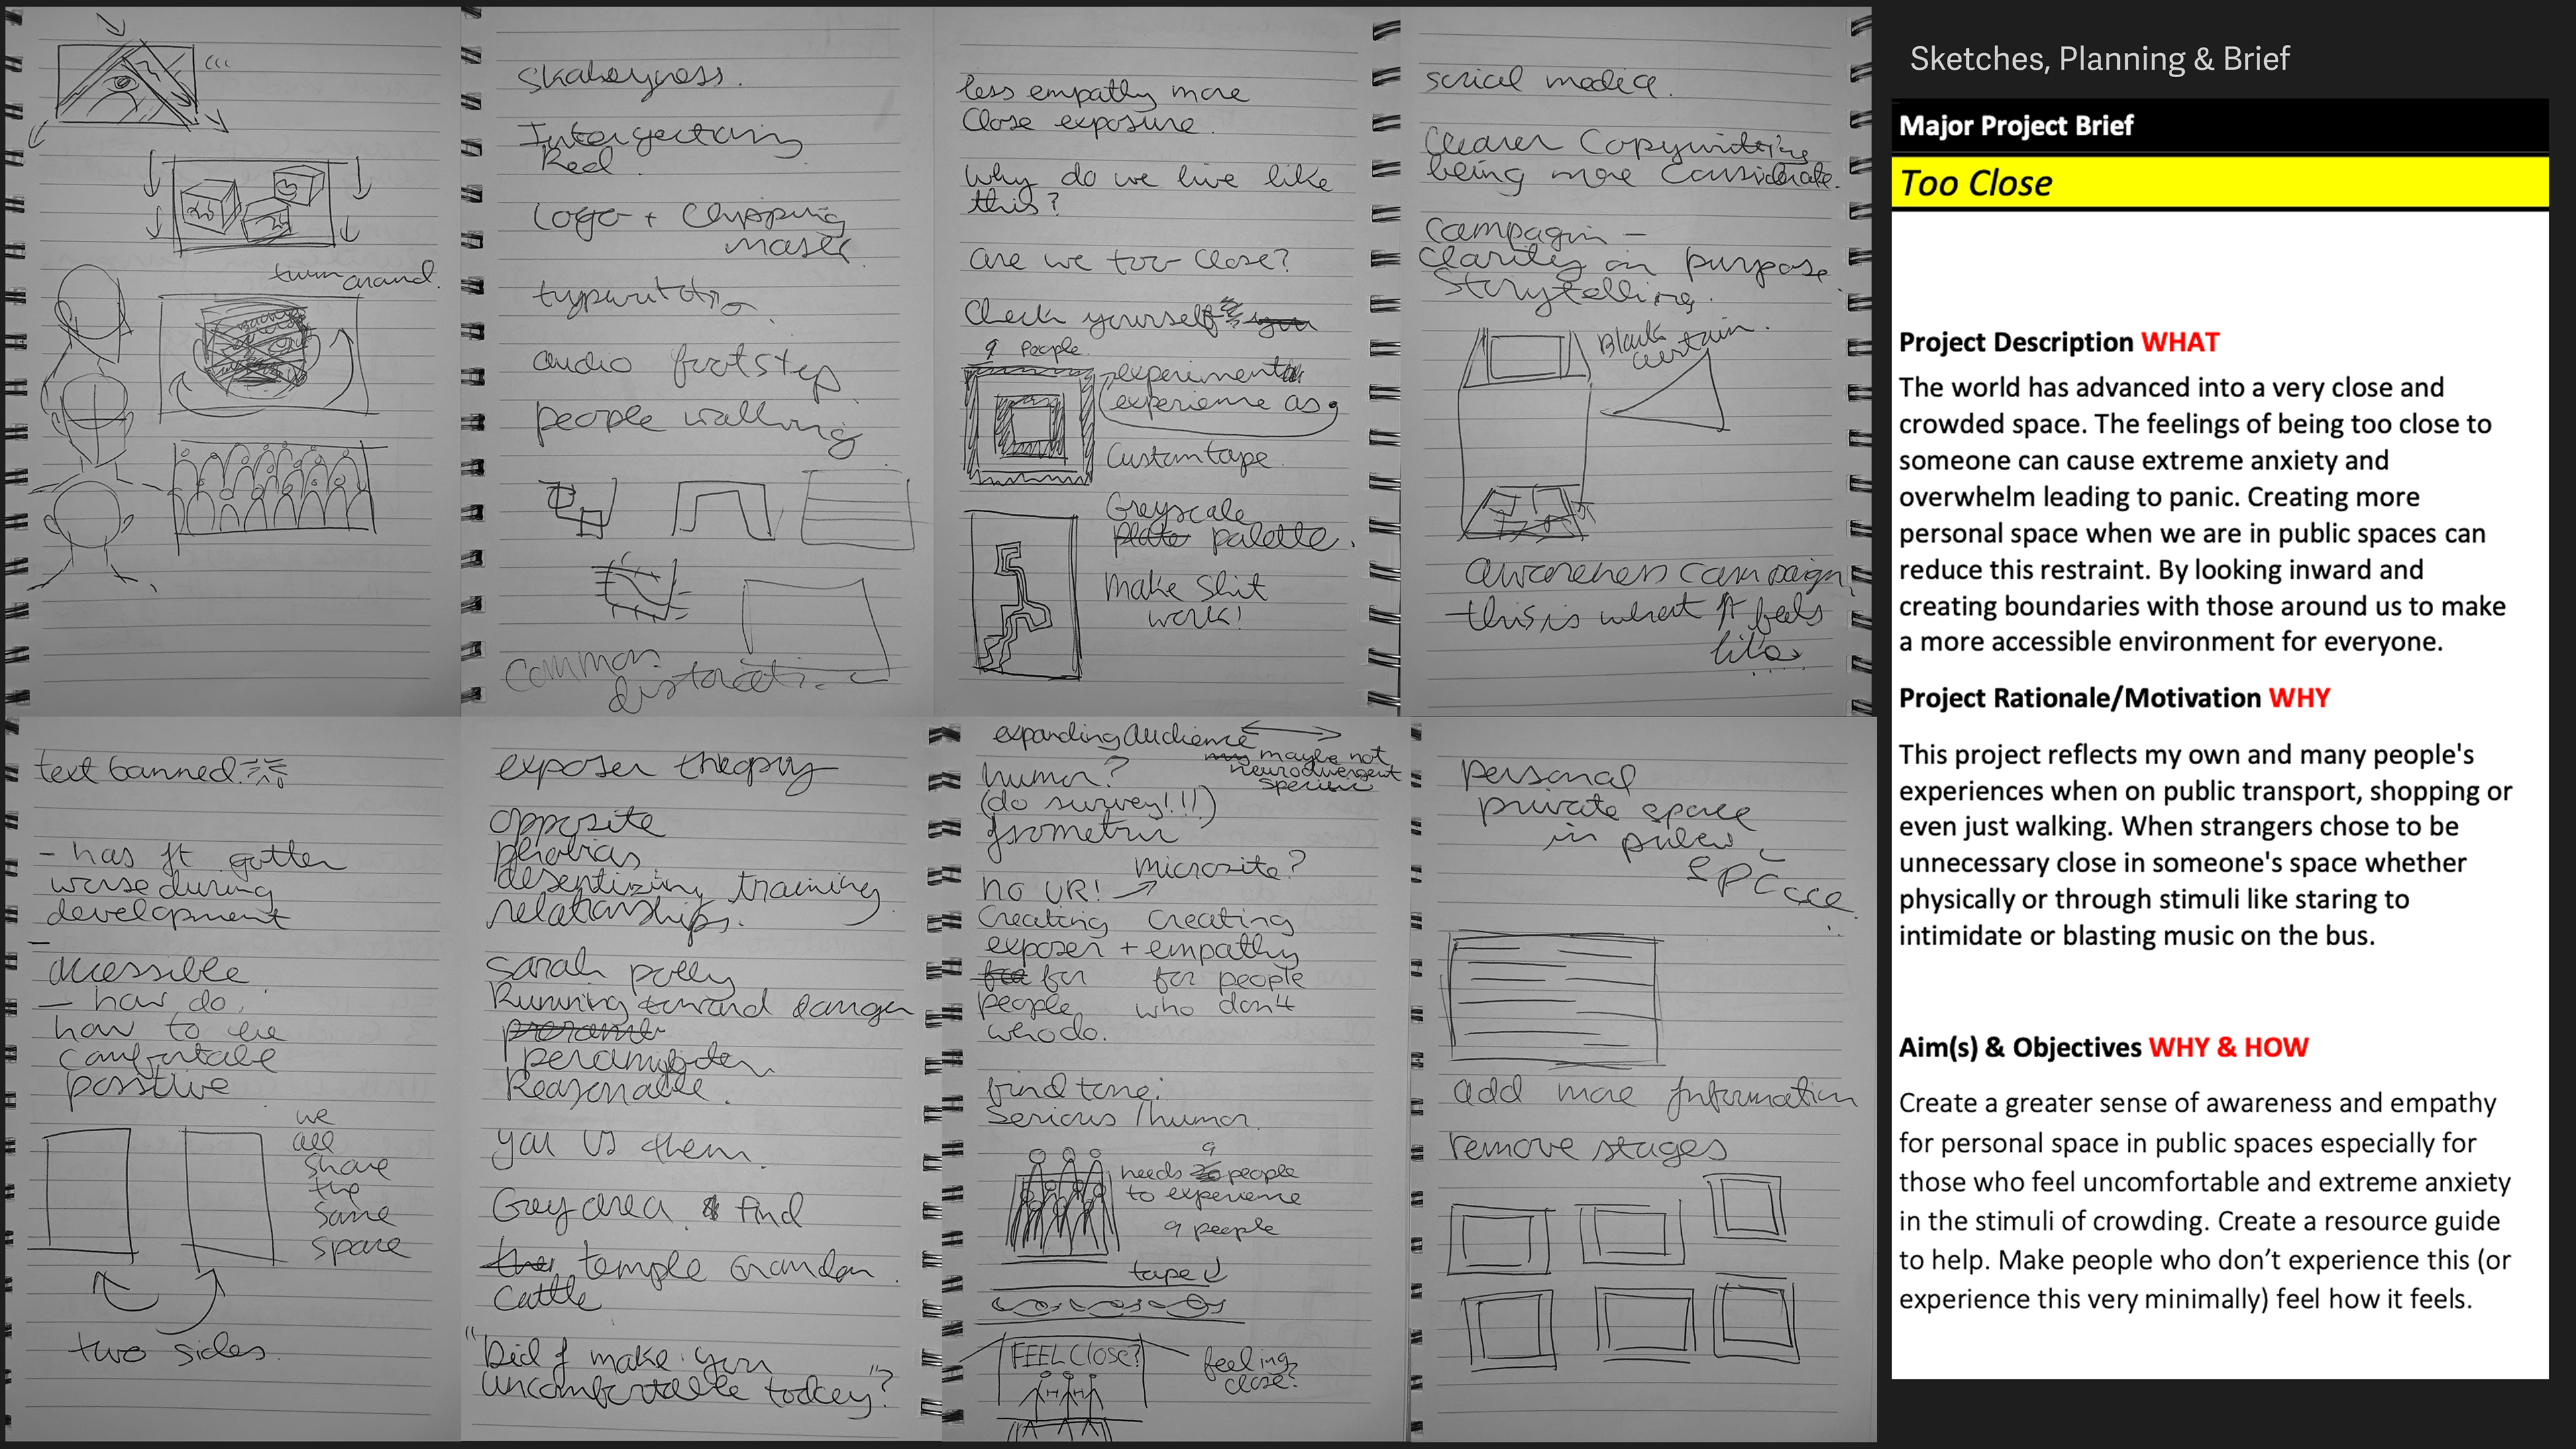 turn around.
Shakeyness.
Intersecting
Red
Logo + Clipping
mask
audio footstep
people walking
Common
less empathy more
Close exposure.
Why do we live like
this?
are we too close?
Check yourself
9 People
experiment
experience as 9
Custom tape
Greyscale
palette.
make shit
work!
social media.
Clearer Copywriting
being more Considerate.
Campagin -
Clarity on purpose
Storytelling.
Black
curtain.
awareness campaign
this is what it feels
like
text banned
- has it gotten
worse during
development
-
accessible
- how do,
how to be
comfortable
positive
we
all
share
the
same
space
two sides.
exposer theory
opposite
phobias
desentizing training
relationships.
Sarah polly
Running toward danger
Reasonable.
you vs them.
Grey area. & find
temple Grandon
Cattle
"Did I make you
uncomfortable today"?
expanding audience
maybe not
neurodivergent
specific
humor?
(do survey!!!)
Isometric
Microsite?
NO VR!
Creating Creating
exposer + empathy
for for people
people who don't
who do.
find tone:
Serious / humor.
9
needs people
to experience
9 people
tape
FEEL Close?
feeling
close?
personal
private space
in
space
add more Information
remove stages
Sketches, Planning & Brief
Major Project Brief
Too Close
Project Description WHAT
The world has advanced into a very close and
crowded space. The feelings of being too close to
someone can cause extreme anxiety and
overwhelm leading to panic. Creating more
personal space when we are in public spaces can
reduce this restraint. By looking inward and
creating boundaries with those around us to make
a more accessible environment for everyone.
Project Rationale/Motivation WHY
This project reflects my own and many people's
experiences when on public transport, shopping or
even just walking. When strangers chose to be
unnecessary close in someone's space whether
physically or through stimuli like staring to
intimidate or blasting music on the bus.
Aim(s) & Objectives WHY & HOW
Create a greater sense of awareness and empathy
for personal space in public spaces especially for
those who feel uncomfortable and extreme anxiety
in the stimuli of crowding. Create a resource guide
to help. Make people who don't experience this (or
experience this very minimally) feel how it feels.